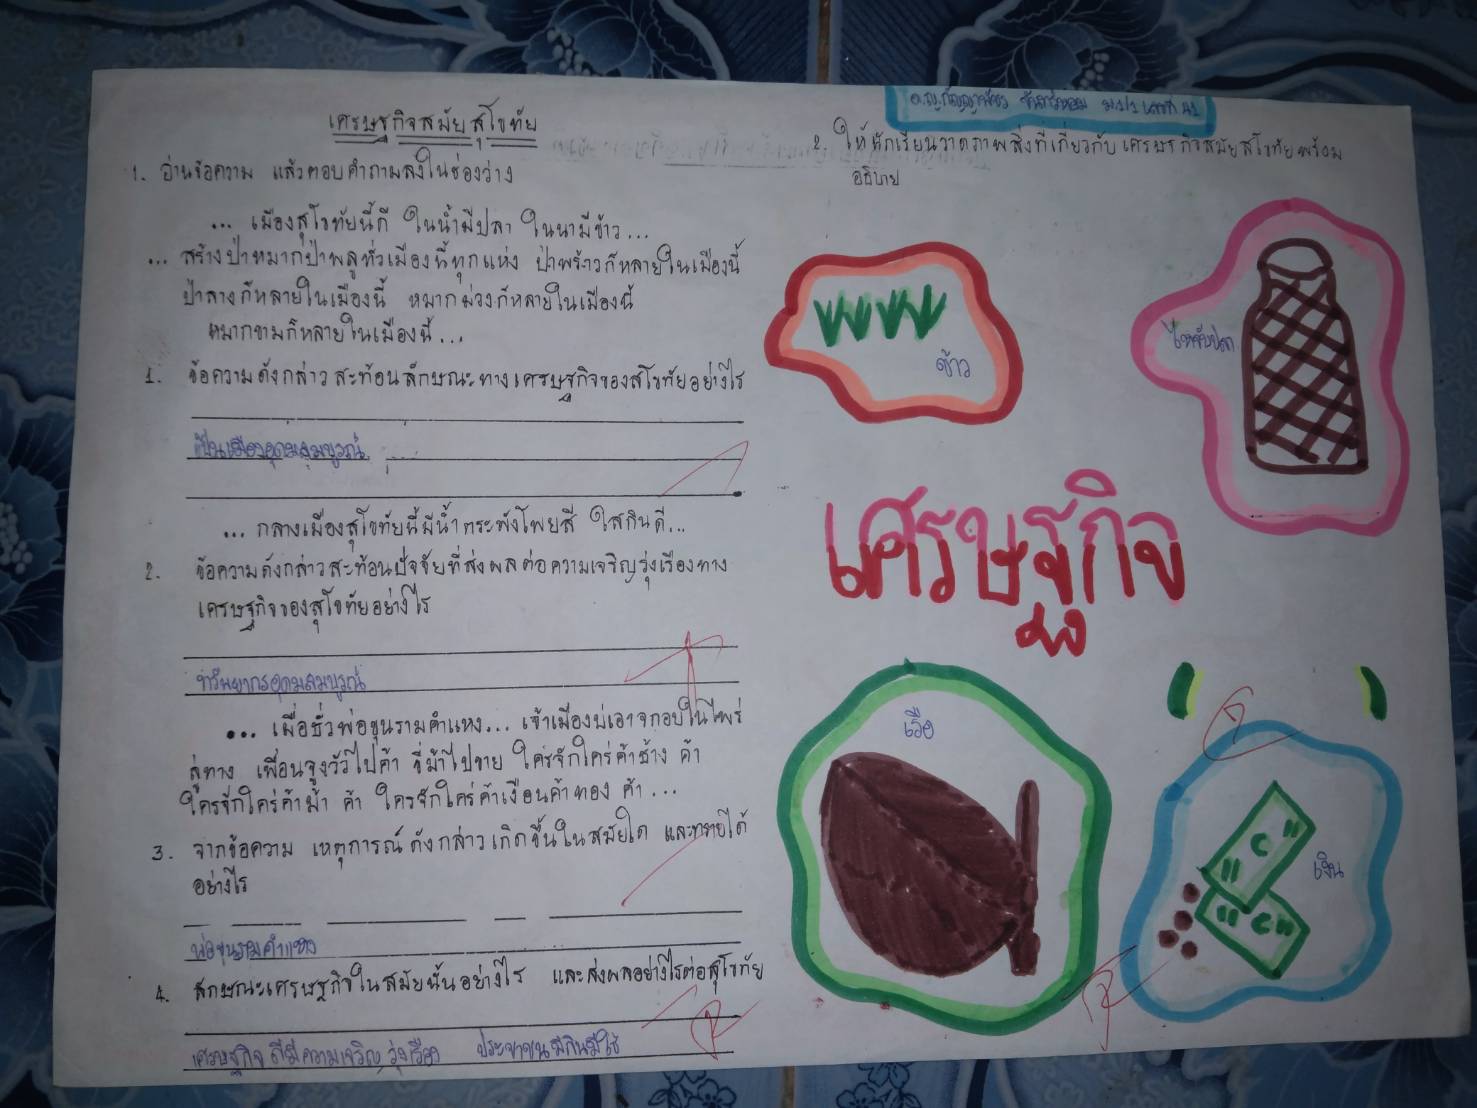 เศรษฐกิจสมัยสุโขทัย
1. อ่านข้อความ แล้วตอบคำถามลงในช่องว่าง
... เมืองสุโขทัยนี้ดี ในน้ำมีปลา ในนามีข้าว...
... สร้างป่าหมากป่าพลูทั่วเมืองนี้ทุกแห่ง ป่าพร้าวก็หลายในเมืองนี้
ป่าลางก็หลายในเมืองนี้ หมากม่วงก็หลายในเมืองนี้
หมากขามก็หลายในเมืองนี้...
1. ข้อความดังกล่าว สะท้อนลักษณะทางเศรษฐกิจของสุโขทัยอย่างไร
เป็นเมืองอุดมสมบูรณ์
... กลางเมืองสุโขทัยนี้มีน้ำตระพังโพยสี ใสกินดี...
2. ข้อความดังกล่าวสะท้อนปัจจัยที่ส่งผลต่อความเจริญรุ่งเรืองทาง
เศรษฐกิจของสุโขทัยอย่างไร
ทรัพยากรอุดมสมบูรณ์
... เมื่อชั่วพ่อขุนรามคำแหง... เจ้าเมืองบ่เอาจกอบในไพร่
ลู่ทาง เพื่อนจูงวัวไปค้า ขี่ม้าไปขาย ใครจักใคร่ค้าช้าง ค้า
ใครจักใคร่ค้าม้า ค้า ใครจักใคร่ค้าเงือนค้าทอง ค้า...
3. จากข้อความ เหตุการณ์ดังกล่าวเกิดขึ้นในสมัยใด และทราบได้
อย่างไร
พ่อขุนรามคำแหง
4. ลักษณะเศรษฐกิจในสมัยนั้นอย่างไร และส่งผลอย่างไรต่อสุโขทัย
เศรษฐกิจดีมีความเจริญรุ่งเรือง ประชาชนมีกินมีใช้
ด.ญ.กัญญาพัชร ม.1/1 เลขที่ 41
2. ให้นักเรียนวาดภาพสิ่งที่เกี่ยวกับเศรษฐกิจสมัยสุโขทัยพร้อม
อธิบาย
ข้าว
ไหจับปลา
เศรษฐกิจ
เรือ
เงิน